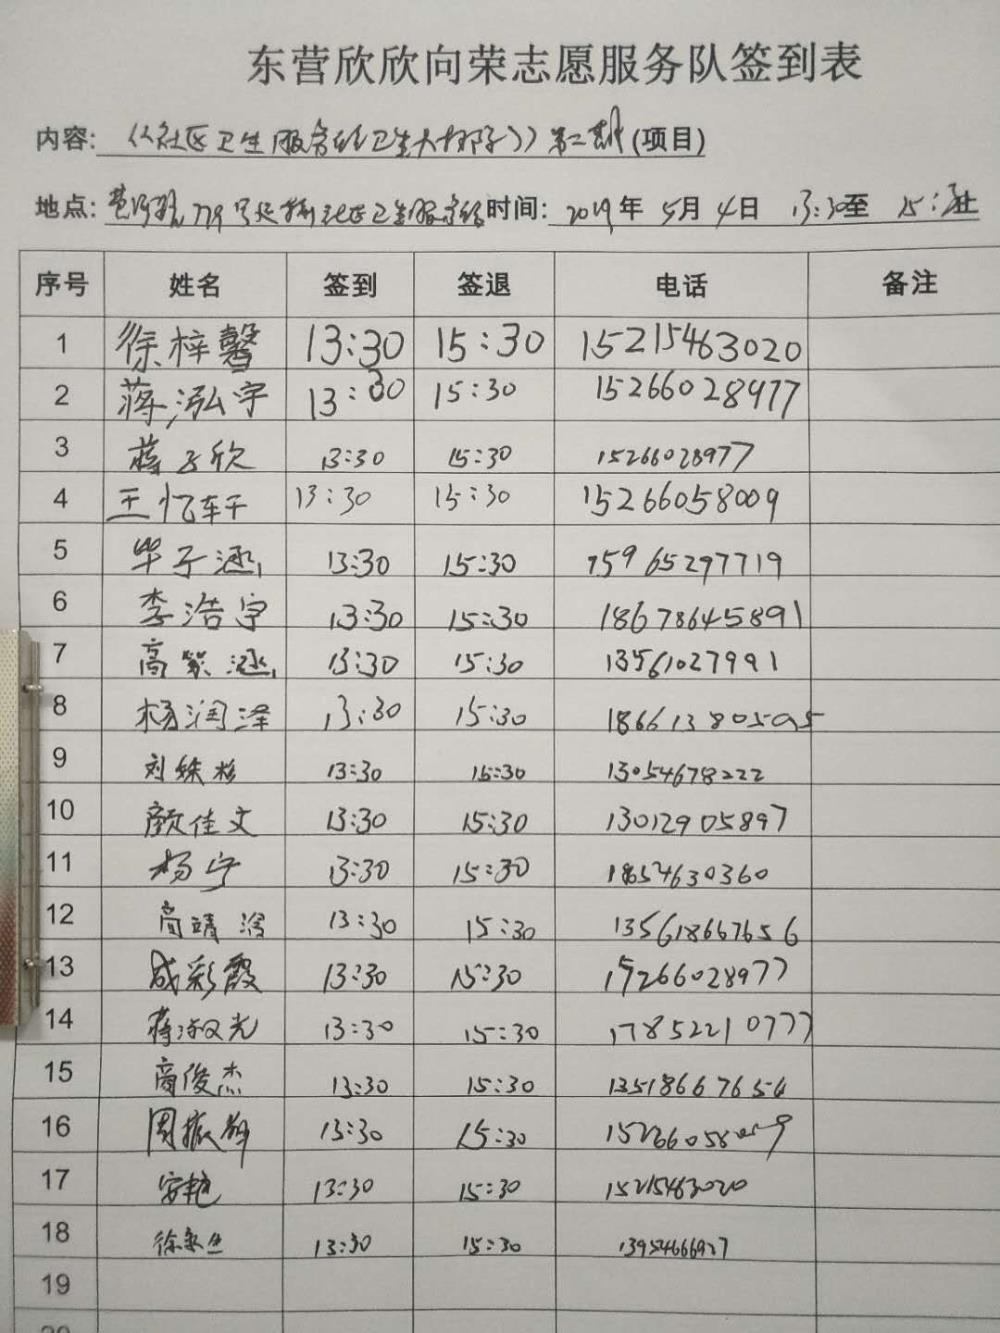 东营欣欣向荣志愿服务队签到表
内容: 《社区卫生服务站卫生大扫除》第二期 (项目)
地点: 779号 社区卫生服务站 时间: 2019年 5月 4日 13:30至 15:30止
序号 姓名 签到 签退 电话 备注
1 徐梓馨 13:30 15:30 15215463020
2 蒋泓宇 13:30 15:30 15266028977
3 蒋子欣 13:30 15:30 15266028977
4 王忆轩 13:30 15:30 15266058009
5 毕子涵 13:30 15:30 15965297719
6 李浩宇 13:30 15:30 18678645891
7 高 涵 13:30 15:30 13561027991
8 杨润泽 13:30 15:30 18661380505
9 刘姝杉 13:30 15:30 13054678222
10 颜佳文 13:30 15:30 13012905897
11 杨宁 13:30 15:30 18654630360
12 商靖 13:30 15:30 135618667656
13 成彩霞 13:30 15:30 15266028977
14 蒋淑光 13:30 15:30 17852210777
15 商俊杰 13:30 15:30 13518667656
16 周振 13:30 15:30 15266058009
17 安艳 13:30 15:30 15215463020
18 徐 13:30 15:30 13954666927
19
20